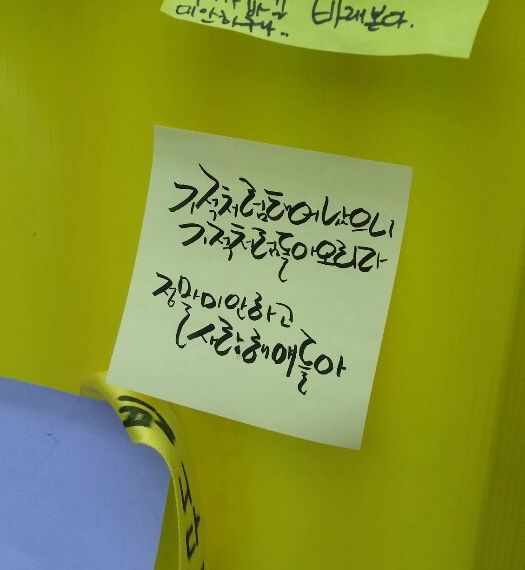 미안하구나.. 바래본다.
기적처럼태어났으니
기적처럼돌아오리라
정말미안하고
사랑해얘들아